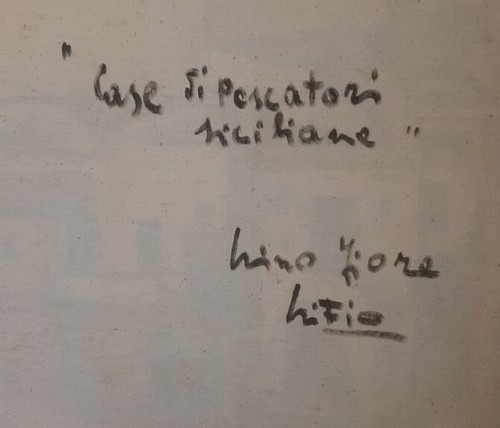 " Case di pescatori
siciliane "
Nino Fiore
NiFio